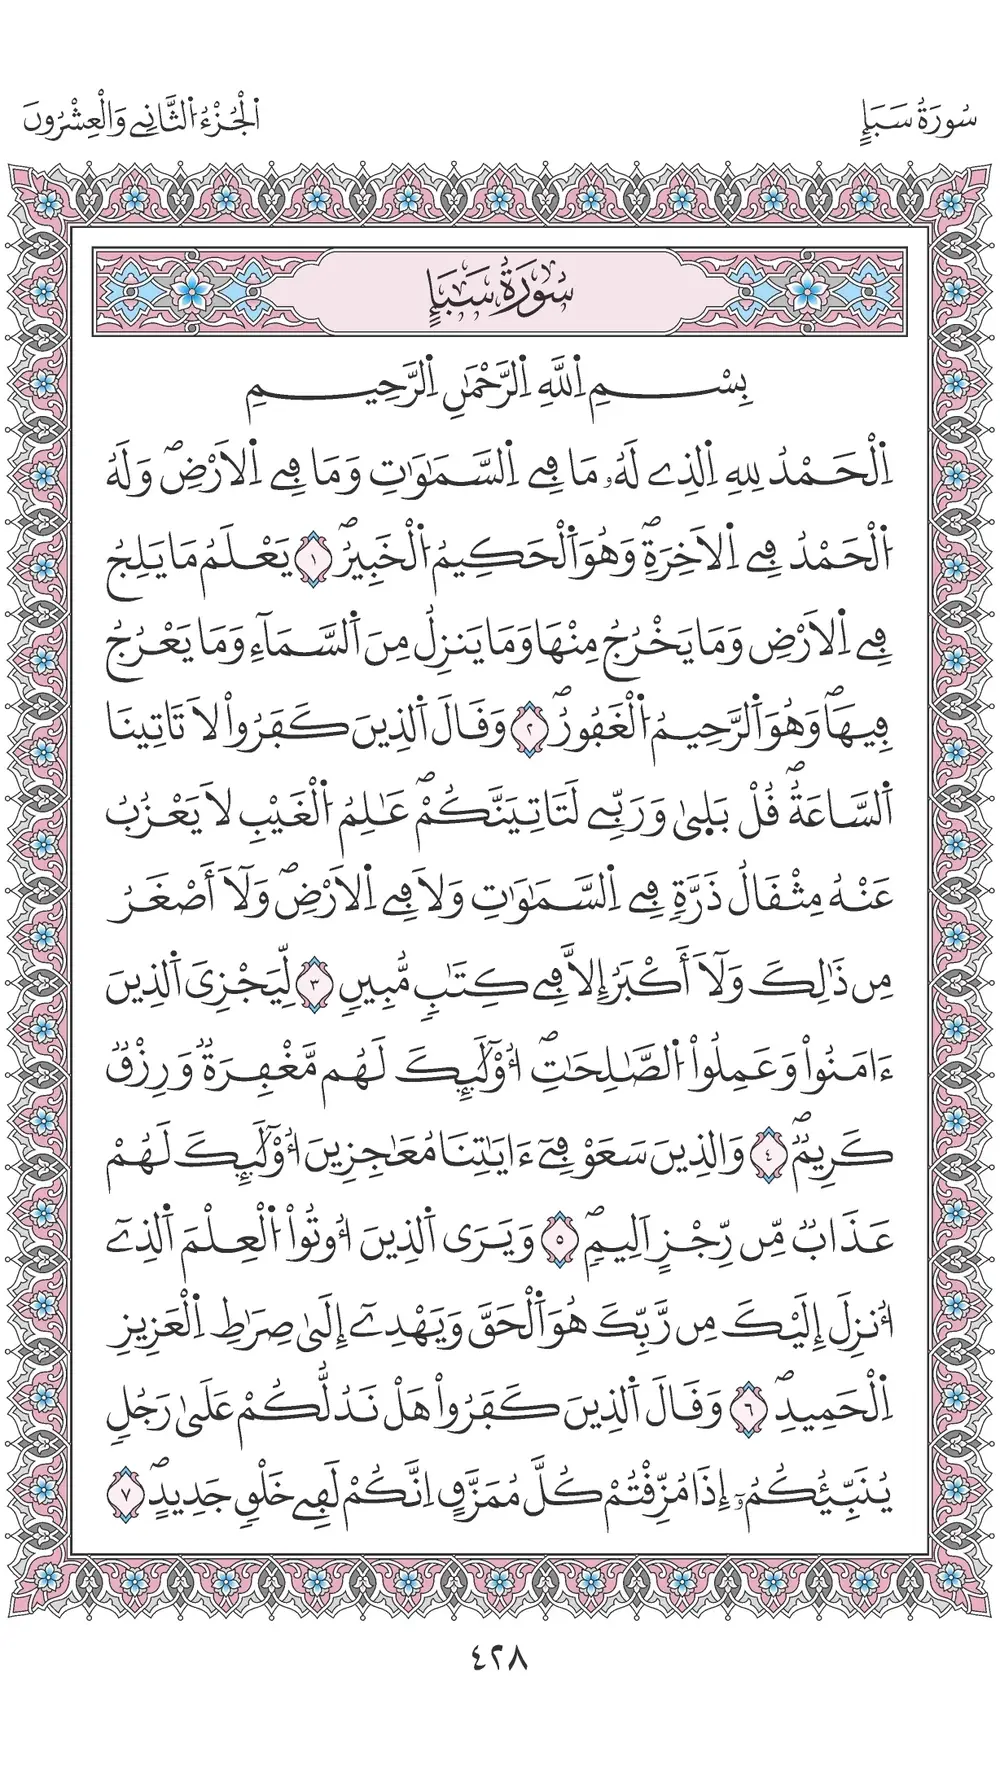 سُورَةُ سَبَإٍ
اَلْجُزْءُ الثَّانِے وَالْعِشْرُونَ
سُورَةُ سَبَإٍ
بِسْمِ اِ۬للَّهِ اِ۬لرَّحْمَٰنِ اِ۬لرَّحِيمِ
اِ۬لْحَمْدُ لِلهِ اِ۬لذِے لَهُۥ مَا فِے اِ۬لسَّمَٰوَٰتِ وَمَا فِے اِ۬لَارْضِۖ وَلَهُ
اُ۬لْحَمْدُ فِے اِ۬لَاخِرَةِۖ وَهُوَ اَ۬لْحَكِيمُ اُ۬لْخَبِيرُۖ ١ يَعْلَمُ مَا يَلِجُ
فِے اِ۬لَارْضِ وَمَا يَخْرُجُ مِنْهَا وَمَا يَنزِلُ مِنَ اَ۬لسَّمَآءِ وَمَا يَعْرُجُ
فِيهَاۖ وَهُوَ اَ۬لرَّحِيمُ اُ۬لْغَفُورُۖ ٢ وَقَالَ اَ۬لذِينَ كَفَرُواْ لَا تَاتِينَا
اَ۬لسَّاعَةُۖ قُلْ بَل۪ىٰ وَرَبِّے لَتَاتِيَنَّكُمْۖ عَٰلِمُ اُ۬لْغَيْبِ لَا يَعْزُبُ
عَنْهُ مِثْقَالُ ذَرَّةٖ فِے اِ۬لسَّمَٰوَٰتِ وَلَا فِے اِ۬لَارْضِۖ وَلَآ أَصْغَرُ
مِن ذَٰلِكَ وَلَآ أَكْبَرُ إِلَّا فِے كِتَٰبٖ مُّبِينٖ ٣ لِّيَجْزِىَ اَ۬لذِينَ
ءَامَنُواْ وَعَمِلُواْ اُ۬لصَّٰلِحَٰتِۖ أُوْلَٰٓئِكَ لَهُم مَّغْفِرَةٞ وَرِزْقٞ
كَرِيمٞۖ ٤ وَالذِينَ سَعَوْ فِےٓ ءَايَٰتِنَا مُعَٰجِزِينَ أُوْلَٰٓئِكَ لَهُمْ
عَذَابٞ مِّن رِّجْزٍ اَلِيمٖۖ ٥ وَيَرَى اَ۬لذِينَ أُوتُواْ اُ۬لْعِلْمَ اَ۬لذِےٓ
أُنزِلَ إِلَيْكَ مِن رَّبِّكَ هُوَ اَ۬لْحَقَّ وَيَهْدِےٓ إِلَىٰ صِرَٰطِ اِ۬لْعَزِيزِ
اِ۬لْحَمِيدِۖ ٦ وَقَالَ اَ۬لذِينَ كَفَرُواْ هَلْ نَدُلُّكُمْ عَلَىٰ رَجُلٖ
يُنَبِّئُكُمُۥٓ إِذَا مُزِّقْتُمْ كُلَّ مُمَزَّقٍ اِنَّكُمْ لَفِے خَلْقٖ جَدِيدٍۖ ٧
٤٢٨